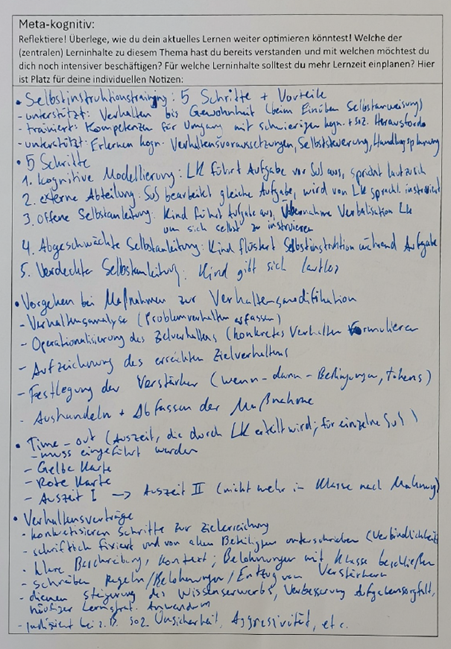 Meta-kognitiv:
Reflektiere! Überlege, wie du dein aktuelles Lernen weiter optimieren könntest! Welche der
(zentralen) Lerninhalte zu diesem Thema hast du bereits verstanden und mit welchen möchtest du
dich noch intensiver beschäftigen? Für welche Lerninhalte solltest du mehr Lernzeit einplanen? Hier
ist Platz für deine individuellen Notizen:
• Selbstinstruktionstraining: 5 Schritte + Vorteile
- unterstützt: Verhalten bis Gewohnheit (beim Einüben Selbstanweisung)
- trainiert: Kompetenzen für Umgang mit schwierigen kogn. + soz. Herausford.
- unterstützt: Erlernen kogn. Verhaltensvoraussetzungen, Selbststeuerung, Handlungsplanung
• 5 Schritte
1. kognitive Modellierung: LK führt Aufgabe vor SuS aus, spricht laut
2. externe Anleitung: SuS bearbeitet gleiche Aufgabe, wird von LK sprachl. instruiert
3. Offene Selbstanleitung: Kind führt Aufgabe aus, Übernahme Verbalisation LK
um sich selbst zu instruieren
4. Abgeschwächte Selbstanleitung: Kind flüstert Selbstinstruktion während Aufgabe
5. Verdeckte Selbstanleitung: Kind gibt sich lautlos
• Vorgehen bei Maßnahmen zur Verhaltensmodifikation
- Verhaltensanalyse (Problemverhalten erfassen)
- Operationalisierung des Zielverhaltens (konkretes Verhalten formulieren
- Aufzeichnung des erreichten Zielverhaltens
- Festlegung der Verstärker (wenn-dann-Bedingungen, Tokens)
- Aushandeln + Abfassen der Maßnahme
• Time-out (Auszeit, die durch LK erteilt wird; für einzelne SuS)
- muss eingeführt werden
- Gelbe Karte
- Rote Karte
- Auszeit I → Auszeit II (nicht mehr in Klasse nach Mahnung)
• Verhaltensverträge
- konkretisieren Schritte zur Zielerreichung
- schriftlich fixiert und von allen Beteiligten unterschrieben (Verbindlichkeit)
- klare Beschreibung, Kontext; Belohnungen mit Klasse beschließen
- schreiben Regeln/Belohnungen/Entzug von Verstärkern
- dienen Steigerung des Wissenserwerbs, Verbesserung Aufgabensorgfalt,
häufiger Lernstrat. Anwenden
- indiziert bei z.B. soz. Unsicherheit, Aggressivität, etc.